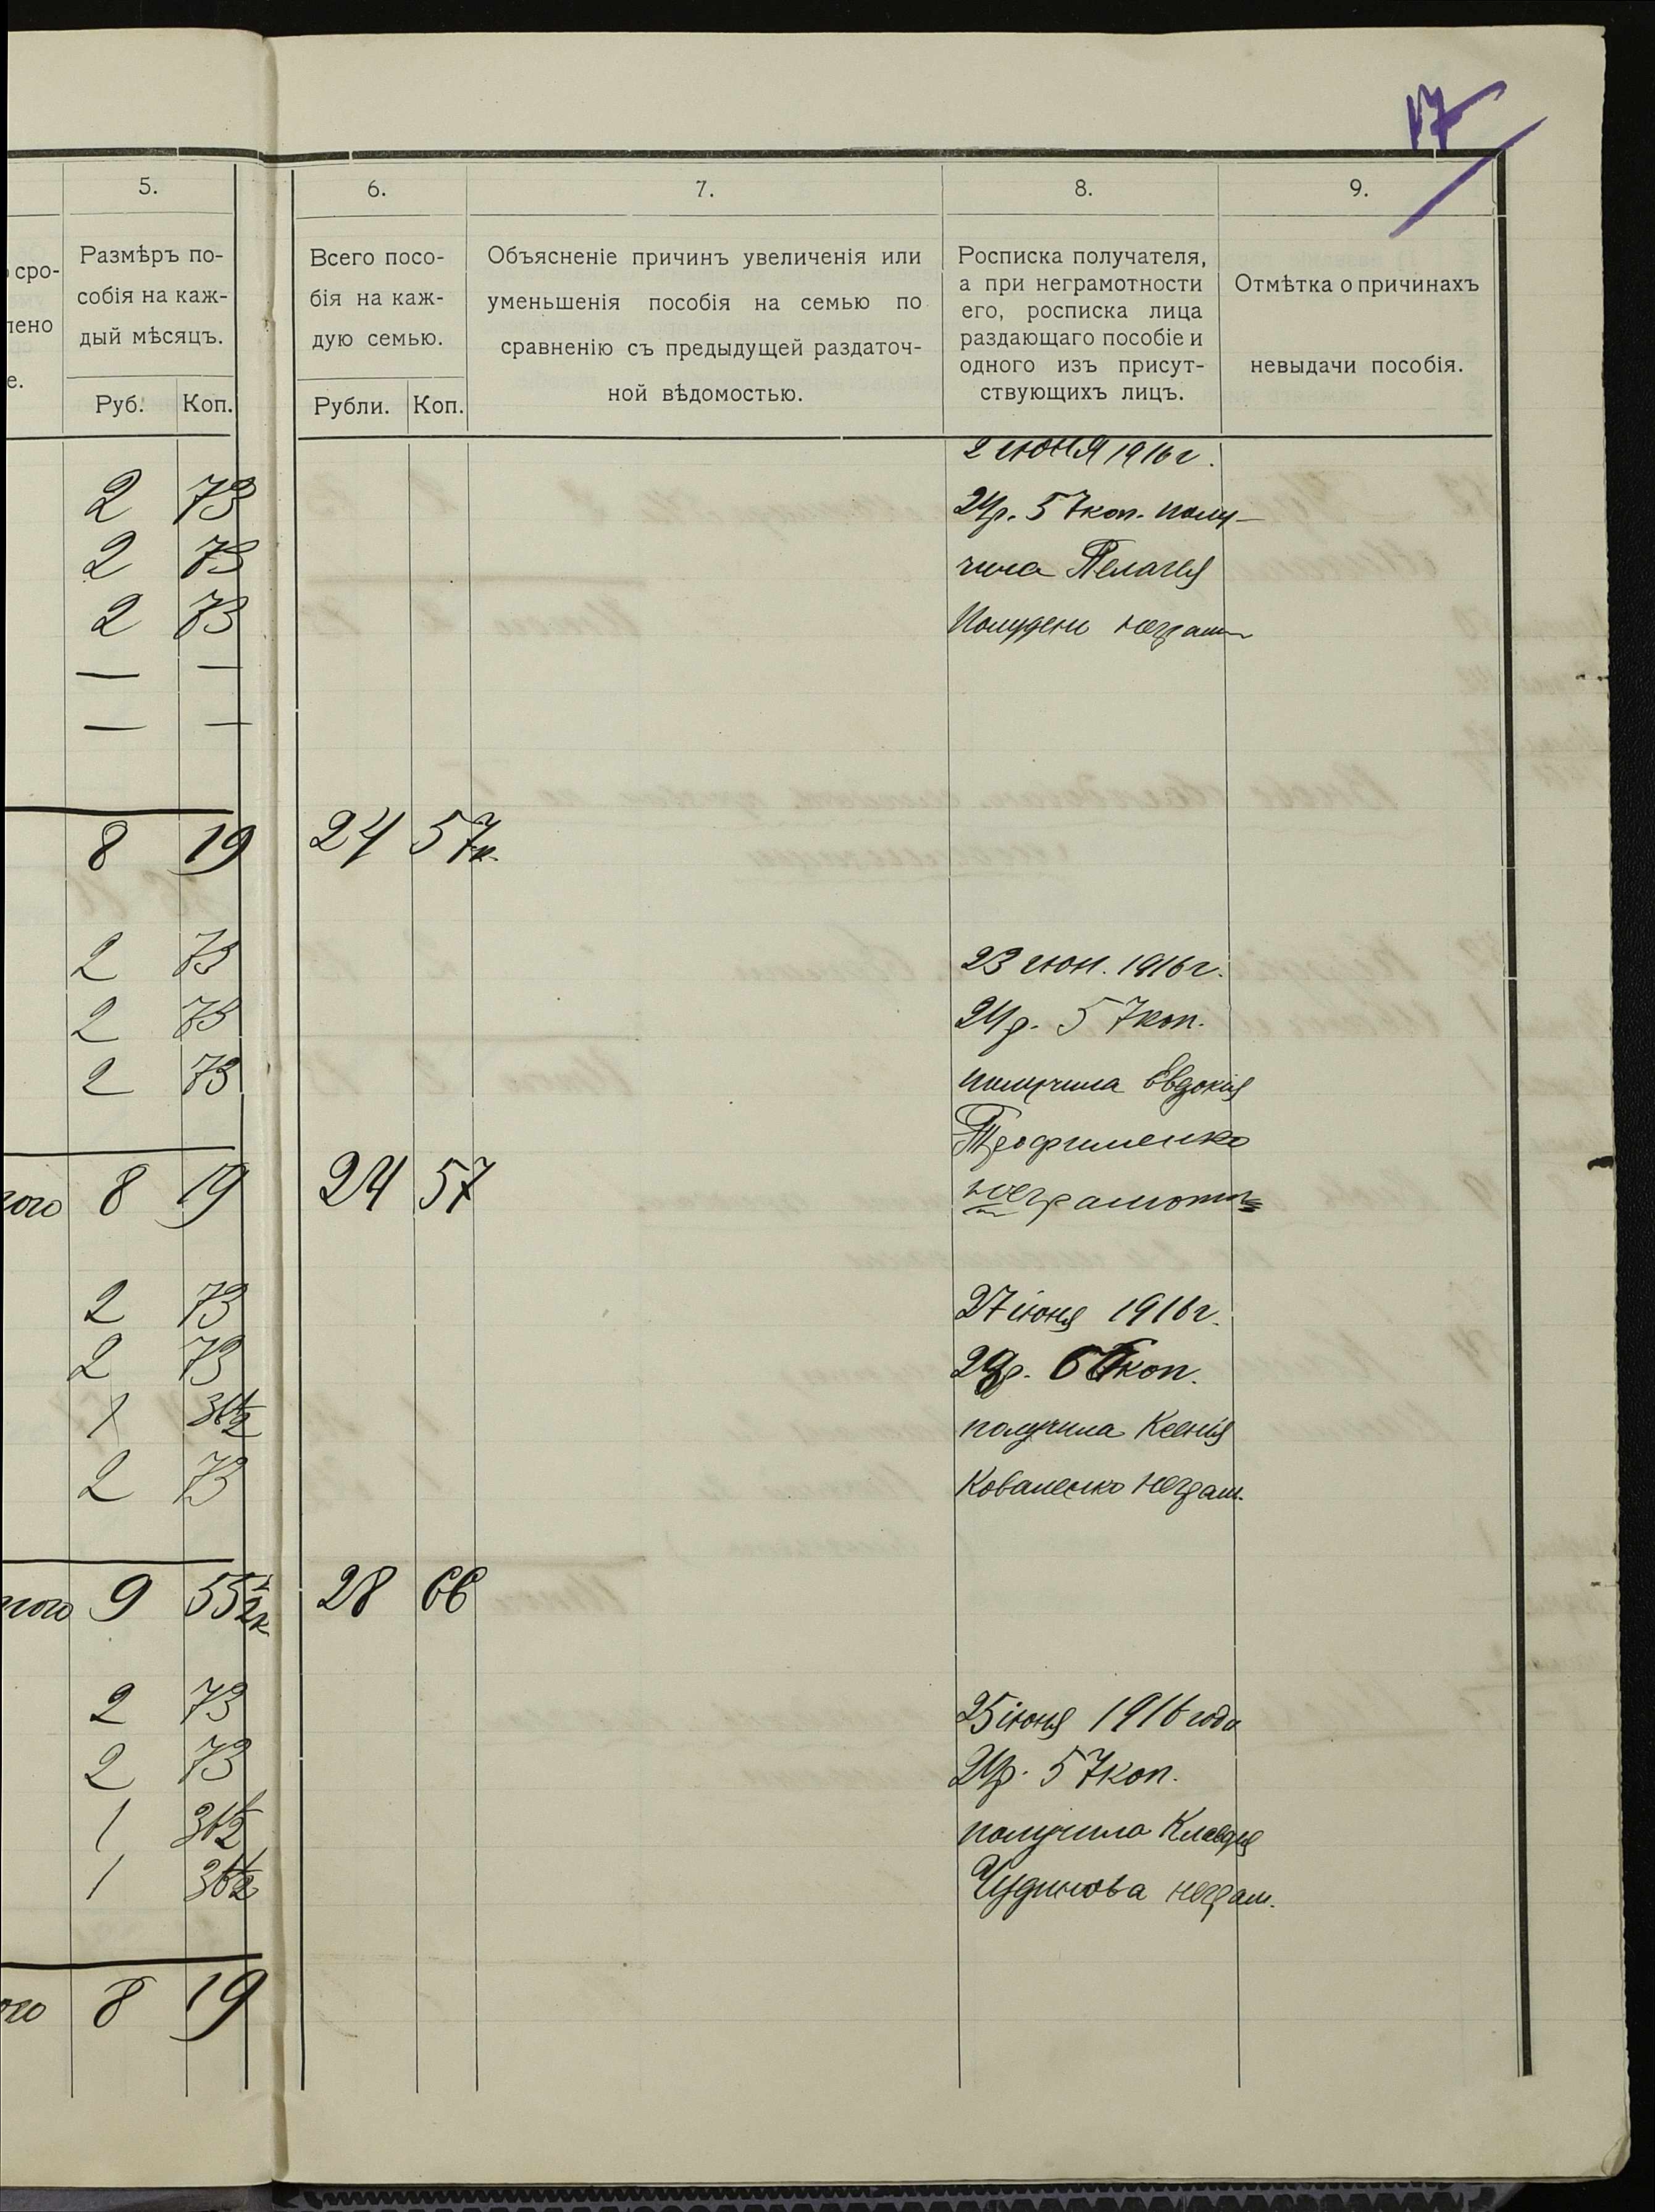 17
5.
6.
7.
8.
9.
сро-
лено
е.
Размѣръ по-
собія на каж-
дый мѣсяцъ.
Руб.
Коп.
Всего посо-
бія на каж-
дую семью.
Рубли.
Коп.
Объясненіе причинъ увеличенія или
уменьшенія пособія на семью по
сравненію съ предыдущей раздаточ-
ной вѣдомостью.
Росписка получателя,
а при неграмотности
его, росписка лица
раздающаго пособіе и
одного изъ присут-
ствующихъ лицъ.
Отмѣтка о причинахъ
невыдачи пособія.
2 июня 1916 г.
2 73
24р. 57коп. полу-
2 73
чила Пелагея
2 73
Полудень неграмн
— —
— —
8 19
24 57к.
2 73
23 июн. 1916 г.
2 73
24р. 57коп.
2 73
получила Евдокія
Трофименко
ого 8 19
24 57
неграмотн
2 73
27 іюня 1916 г.
2 73
28р. 66коп.
1 36½
получила Ксенія
2 73
Коваленко неграм.
того 9 55½к
28 66
2 73
25 іюня 1916 года
2 73
24р. 57коп.
1 36½
получила Клавдія
1 36½
Чудинова неграм.
ого 8 19